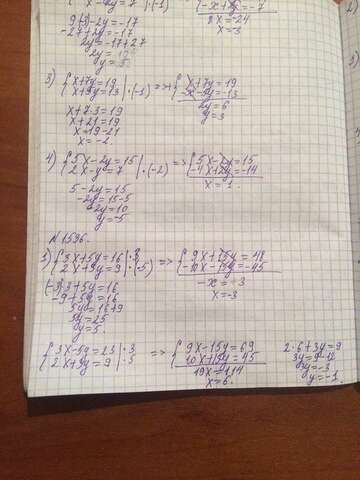 9(-3)-2y=-17
-27+2y=-17
2y=-17+27
8x=-24
x=-3
3) {x+7y=19
x+5y=13 |·(-1) => {x+7y=19
-x-5y=-13
2y=6
y=3
x+7·3=19
x+21=19
x=19-21
x=-2
4) {5x-2y=15
2x-y=7 |·(-2) => {5x-2y=15
-4x+2y=-14
x=1.
5-2y=15
-2y=15-5
-2y=10
y=-5
N1596.
1) {3x+5y=16 |·3
2x+3y=9 |·(-5) => {9x+15y=48
-10x-15y=-45
-x=3
x=-3
(-3)3+5y=16
-9+5y=16
5y=16+9
5y=25
y=5.
{3x-5y=23 |·3
2x+3y=9 |·5 => {9x-15y=69
10x+15y=45
19x=114
x=6.
2·6+3y=9
3y=9-12
3y=-3
y=-1